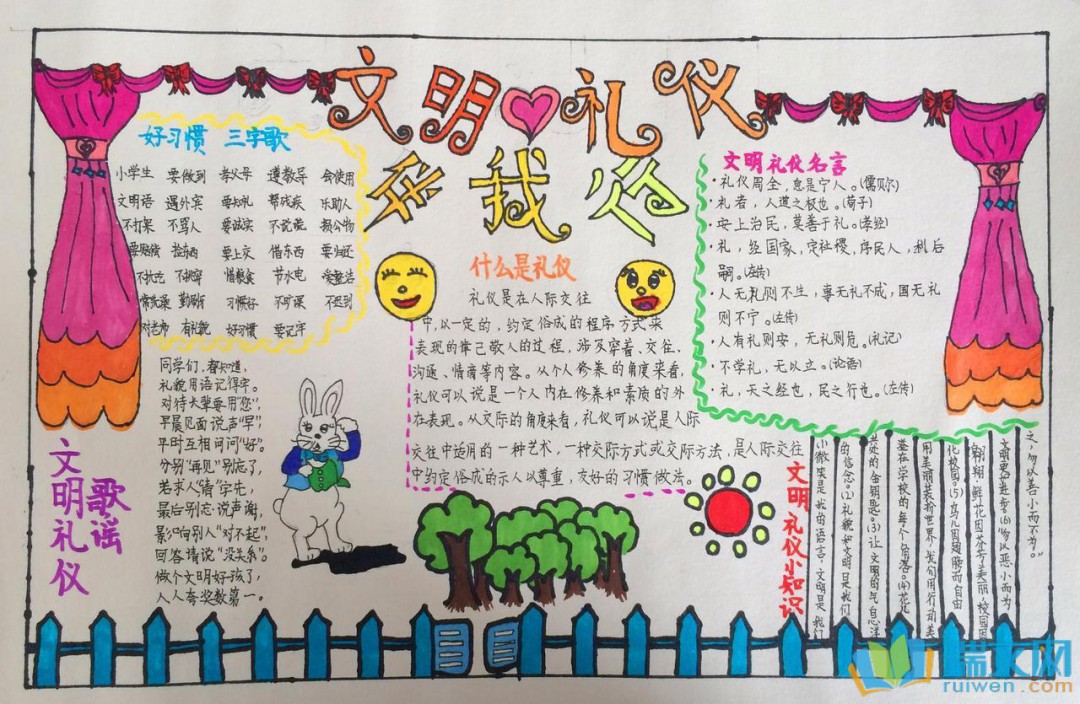 文明礼仪
我行
好习惯 三字歌
小学生 要做到 孝父母 遵教导 会使用
文明语 遇外宾 要知礼 帮残疾 乐助人
不打架 不骂人 要诚实 不说谎 损公物
要赔偿 捡东西 要上交 借东西 要归还
不挑吃 惜粮食 节水电
习惯好 不旷课 不迟到
对老师 有礼貌 好习惯 要记牢
同学们,都知道,
礼貌用语记得牢。
对待长辈要用“您”,
早晨见面说声“早”,
平时互相问问“好”。
分别“再见”别忘了,
若求人“请”字先,
最后别忘说声谢,
影响别人“对不起”,
回答请说“没关系”。
做个文明好孩子,
人人夸奖数第一。
文明礼仪
歌谣
什么是礼仪
礼仪是在人际交往
中,以一定的,约定俗成的程序方式来
表现的律己敬人的过程,涉及穿着、交往、
沟通、情商等内容。从个人修养的角度来看,
礼仪可以说是一个人内在修养和素质的外
在表现。从交际的角度来看,礼仪可以说是人际
交往中适用的一种艺术,一种交际方式或交际方法,是人际交往
中约定俗成的示人以尊重,友好的习惯做法。
文明礼仪名言
·礼仪周全,息是宁人。(儒贝尔)
·礼者,人道之极也。(荀子)
·安上治民,莫善于礼。(孝经)
·礼,经国家,定社稷,序民人,利后
嗣。(左传)
·人无礼则不生,事无礼不成,国无礼
则不宁。(左传)
·人有礼则安,无礼则危。(礼记)
·不学礼,无以立。(论语)
·礼,天之经也,民之行也。(左传)
文明礼仪小知识
之,勿以善小而不为。”
文明更加进步。(6)“勿以恶小而为
翱翔,鲜花因芬芳美丽,校园因
化校园。(5)鸟儿因翅膀而自由
用美丽装扮世界,我们用行动美
落在学校的每个角落。(4)花儿
处的金钥匙。(3)让文明的气息洋
的信念。(2)礼貌和文明是我们
小微笑是我的语言,文明是我们
瑞文网
ruiwen.com